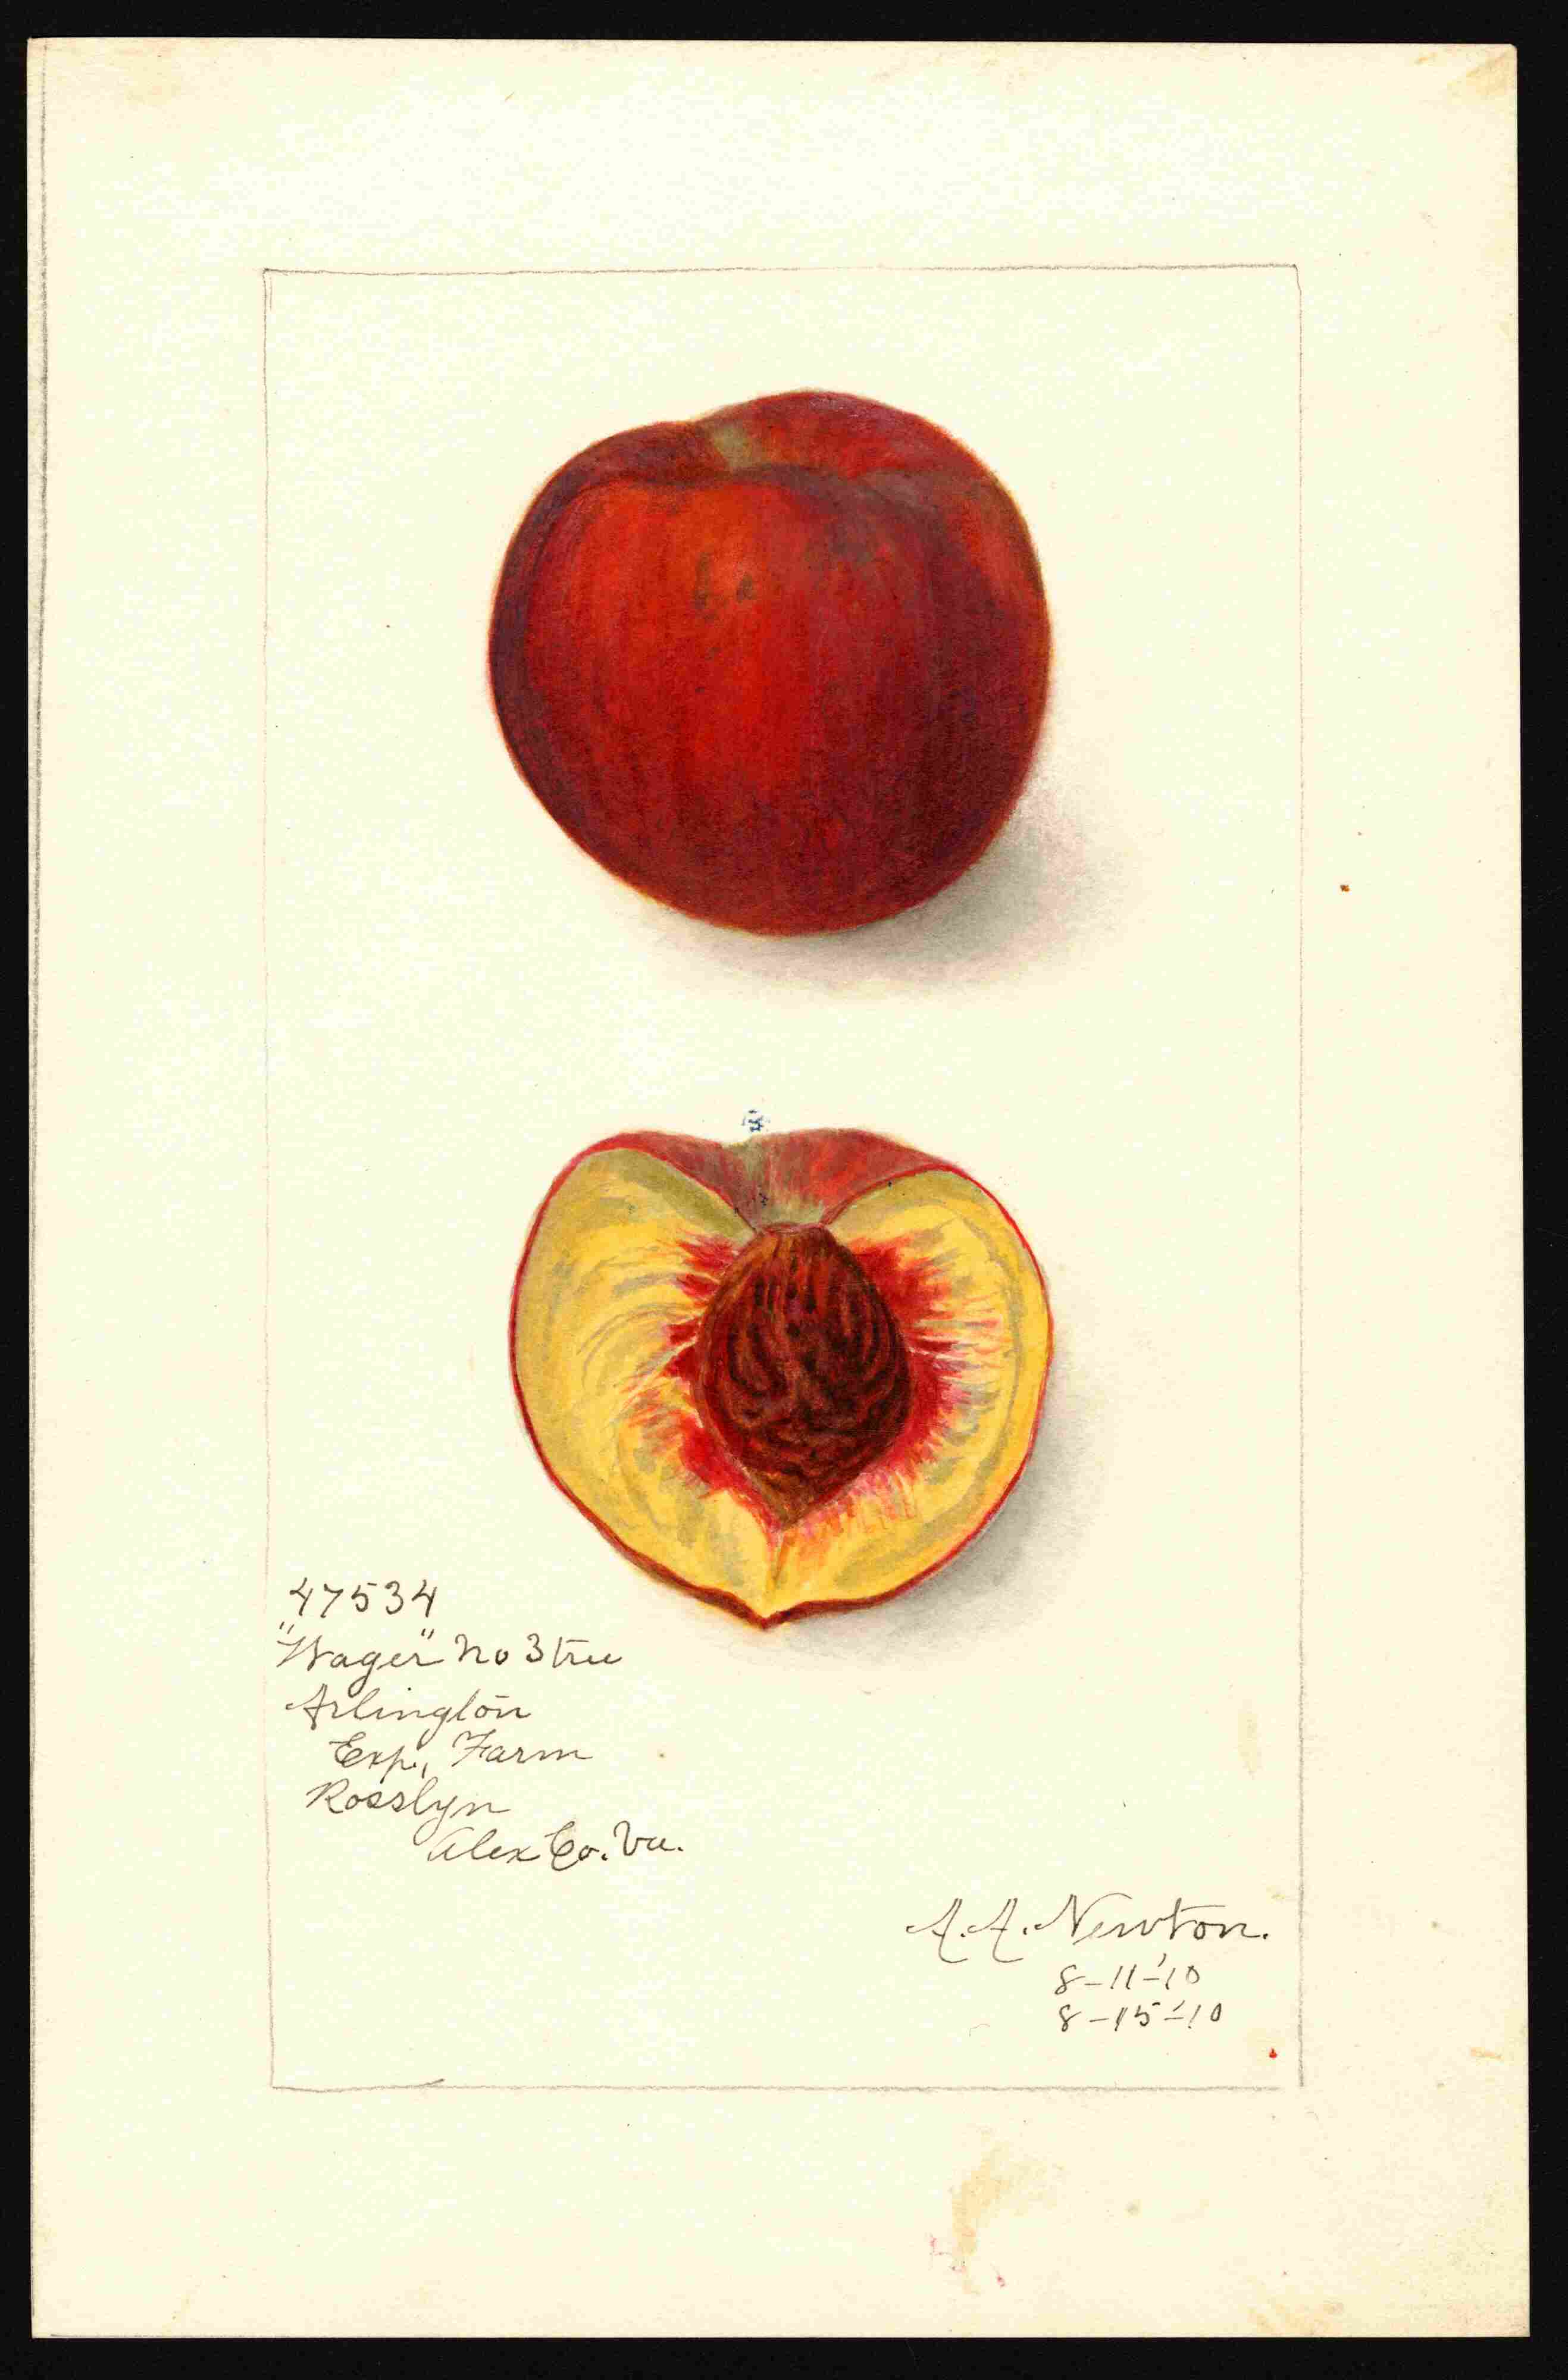 47534
"Wager" No 3 tree
Arlington
Exp., Farm
Rosslyn
Alex Co. Va.
A. A. Newton.
8-11-'10
8-15-'10